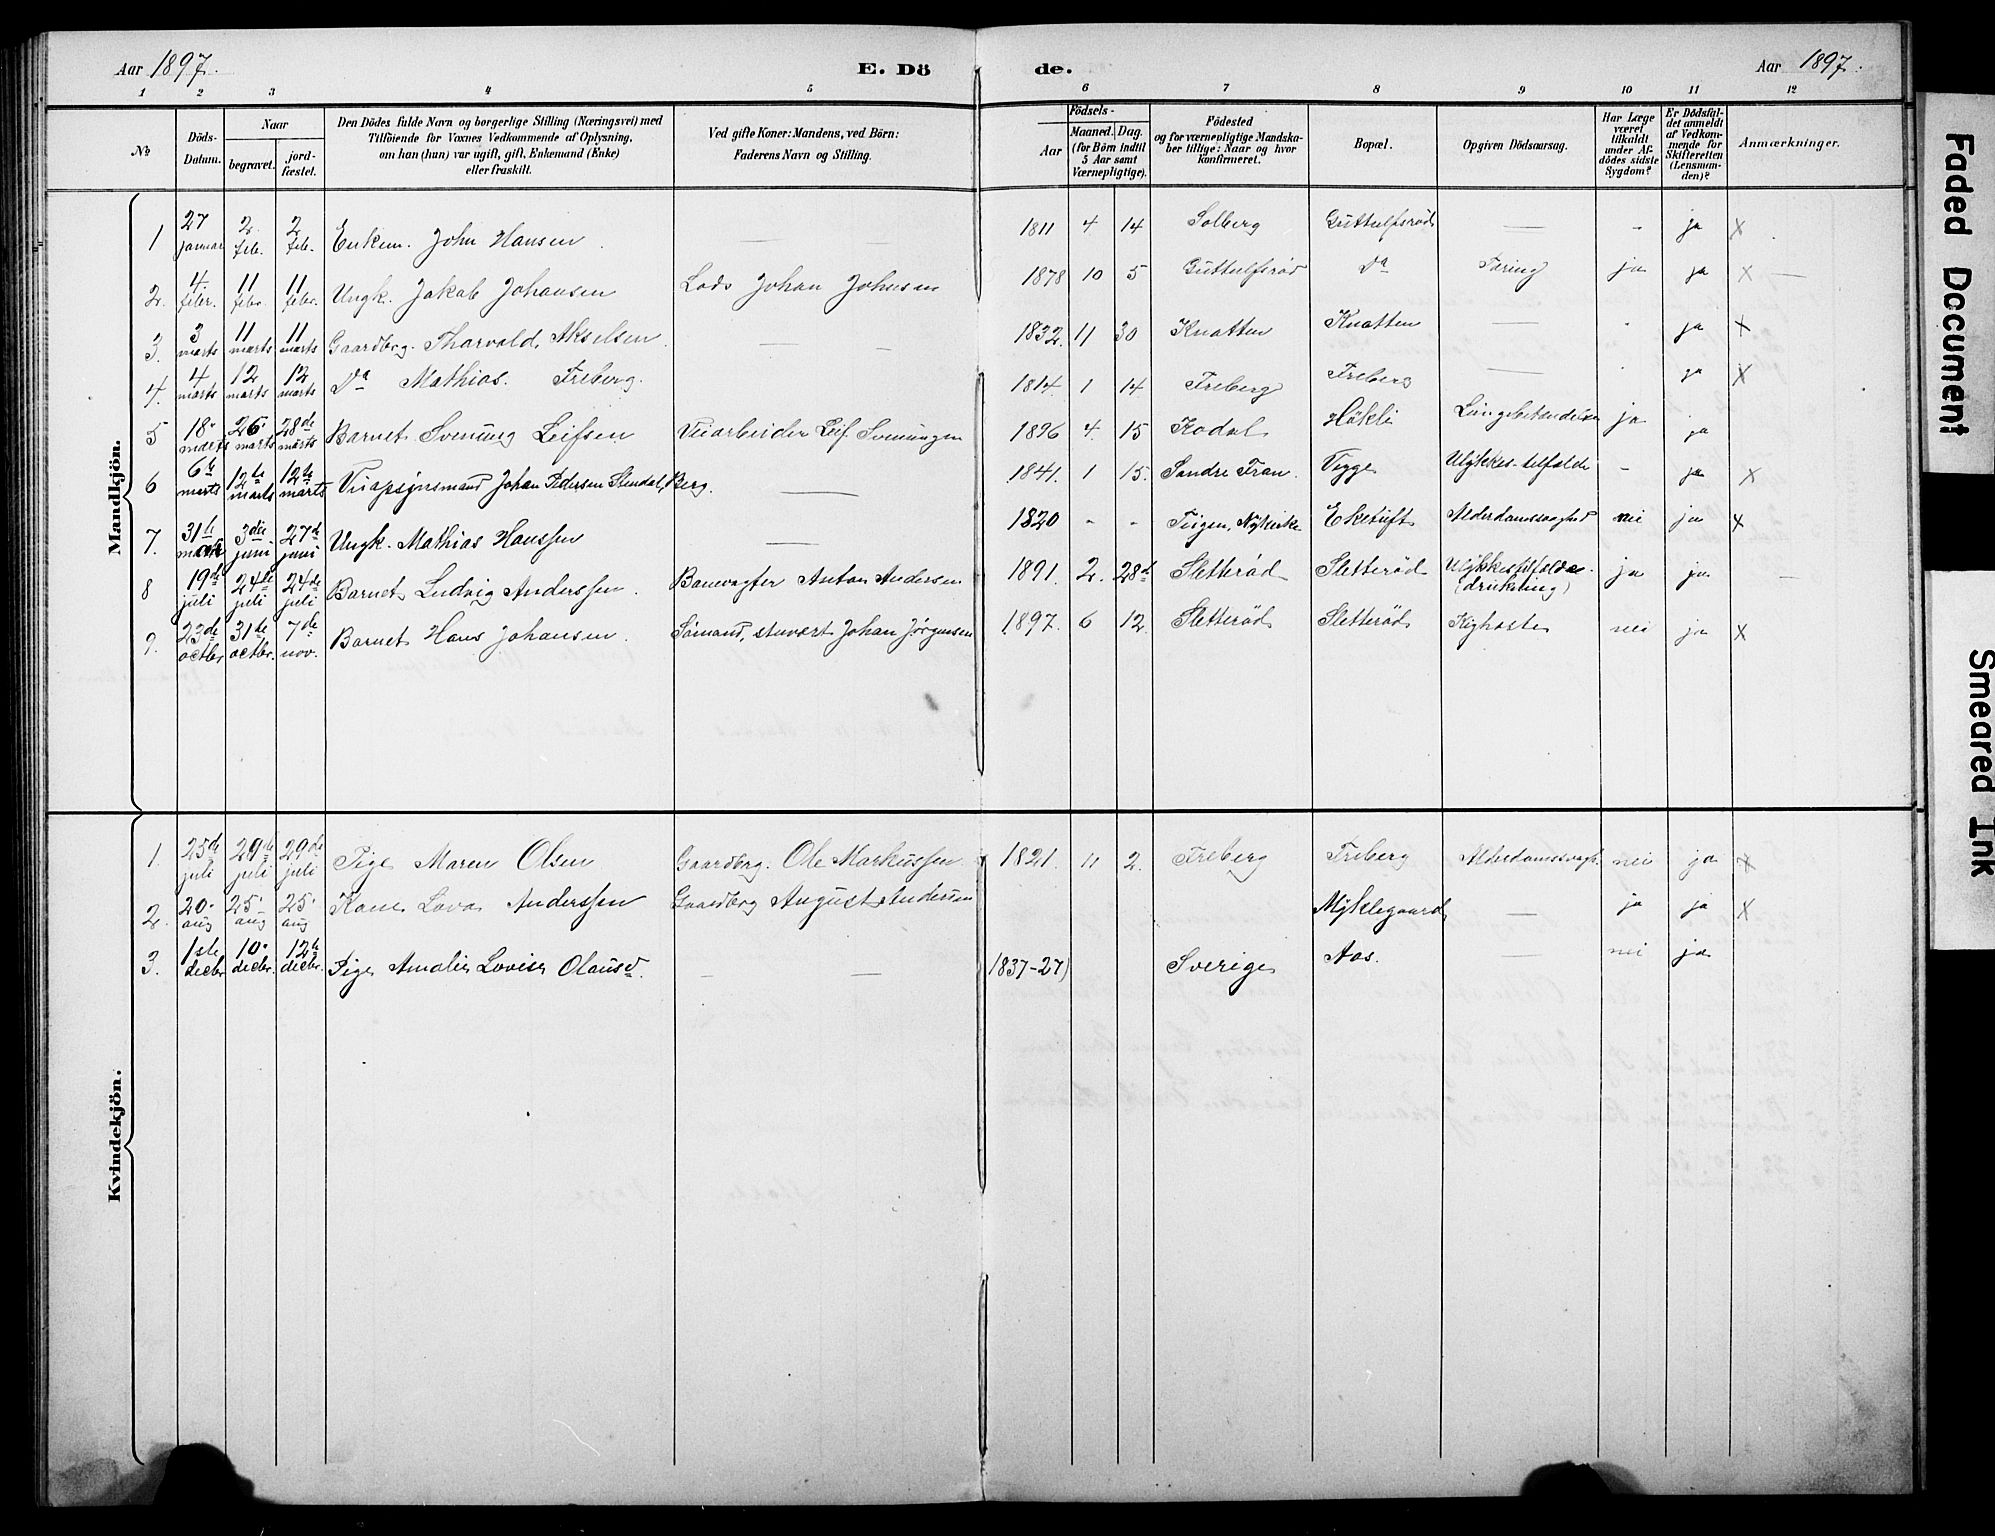 Aar 1897.
E. Dö de.
Aar 1897.
1 2 3 4 5 6 7 8 9 10 11 12
№
Döds-Datum.
Naar
begravet.
jordfæstet.
Den Dödes fulde Navn og borgerlige Stilling (Næringsvei) med Tilföiende for Voxnes Vedkommende af Oplysning, om han (hun) var ugift, gift, Enkemand (Enke) eller fraskilt.
Ved gifte Koner: Mandens, ved Börn: Faderens Navn og Stilling.
Födsels-
Aar
Maaned. Dag.
(for Börn indtil 5 Aar samt Værnepligtige).
Födested og for værnepligtige Mandskaber tillige: Naar og hvor konfirmeret.
Bopæl.
Opgiven Dödsaarsag.
Har Læge været tilkaldt under Afdödes sidste Sygdom?
Er Dödsfaldet anmeldt af Vedkommende for Skifteretten (Lensmanden)?
Anmærkninger.
Mandkjön.
1 27 januar 2. feb. 2 feb. Enkem. John Hansen — — 1811 4 14 Solberg Guttulfsrød — - ja x
2. 4. febr. 11 febr. 11 febr. Ungk. Jakob Johansen Lods Johan Johnsen 1878 10 5 Guttulfsrød Do Tæring ja ja x —
3. 3 marts 11 marts 11 marts Gaardbrg. Tharvald Akselsen. — — 1832 11 30 Knatten Knatten — - ja x
4. 4 marts 12 marts 12 marts Da Mathias. Freberg. 1814 1 14 Freberg Freberg — - ja x
5 18. marts 26. marts 28de marts Barnet Svenung Leifsen Veiarbeider Leif Svenungen 1896 4. 15 Kodal Høkli Lungebetændelse ja ja
6 6te marts 12te marts 12te marts Veiopsynsmand Johan Pedersen Stendal, Berg. — 1841. 1 15. Søndre Fron. Tygge Ulykkes-tilfælde - ja x
7. 31te marts 3die juni 27d juni Ungk. Mathias Hanssen — 1820 - - Teigen, Nykirke Eketuft Alderdomssvaghed nei ja x
8 19de juli 24de juli 24de juli Barnet Ludvig Anderssen. Banevogter Anton Andersen 1891. 2. 28d Sletterød Sletterød Ulykkestilfælde (drukning) ja ja —
9. 23de octbr 31te octbr. 7de nov. Barnet Hans Johansen. Sømand, stuvert Johan Jørgensen 1897. 6 12. Sletterød Sletterød Kighoste nei ja x
Kvindekjön.
1. 25de juli 29de juli 29de juli Pige Maren Olsen Gaardbrg. Ole Markussen 1821. 11 2. Freberg Freberg Alderdomssvagh. nei ja x
2. 20. aug 25. aug 25. aug Kone Lova Anderssen Gaardbrg August Andersen Myklegaard — ja ja x
3. 1ste decbr 10. decbr. 12te decbr. Pige Amalie Lovise Olausd. — — 1837-27) Sverige Aas. — nei ja
Faded Document
Smeared Ink